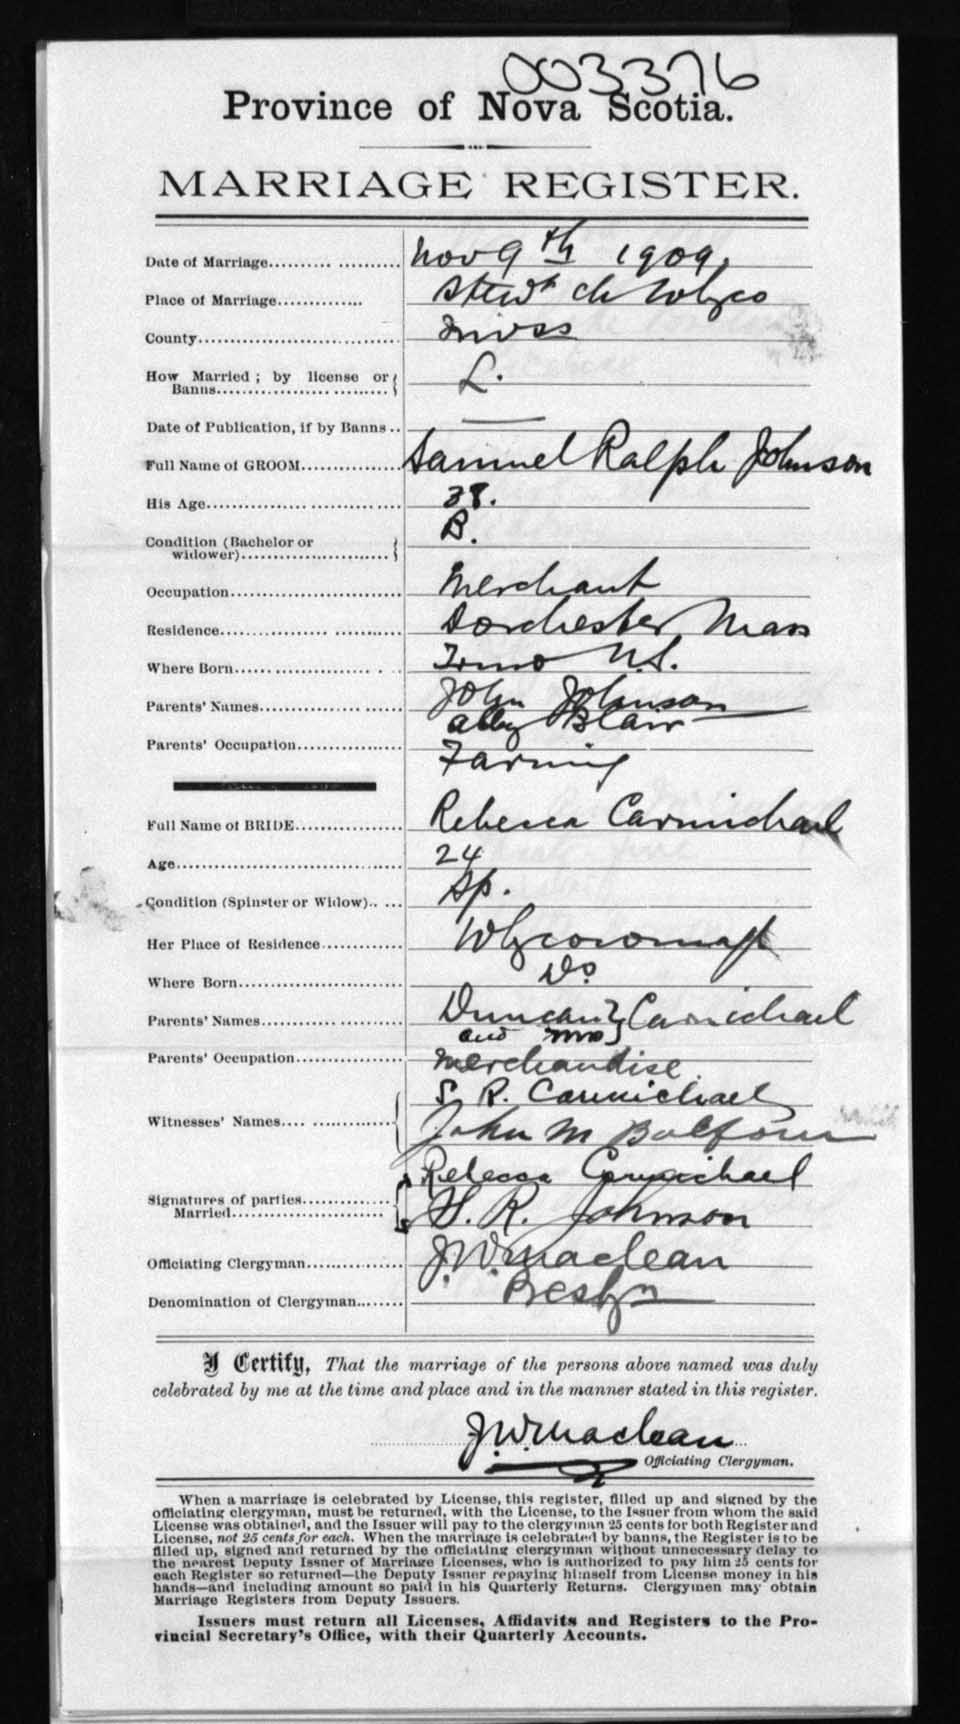 003376
Province of Nova Scotia.
MARRIAGE REGISTER.
Date of Marriage.......... Nov 9th 1909.
Place of Marriage............. Stewt Ch Whyco
County............................. Inverss
How Married; by license or
Banns........................ L.
Date of Publication, if by Banns.. —
Full Name of GROOM............... Samuel Ralph Johnson
His Age............................. 38.
Condition (Bachelor or
widower)........................ B.
Occupation............................ Merchant
Residence............................ Dorchester Mass
Where Born.................... Truro N.S.
Parents' Names.................... John Johnson
Blair
Parents' Occupation............... Farming
Full Name of BRIDE................ Rebecca Carmichael
Age..................................... 24
Condition (Spinster or Widow)..... Sp.
Her Place of Residence............ Whycocomagh
Where Born.......................... Do
Parents' Names..................... Duncan } Carmichael
and Mrs }
Parents' Occupation................ Merchandise
Witnesses' Names.................. S. R. Carmichael
John M Balfour
Rebecca Carmichael
Signatures of parties
Married........................ S. R. Johnson
Officiating Clergyman.............. J. W. Maclean
Denomination of Clergyman........ Presbyn
I Certify, That the marriage of the persons above named was duly
celebrated by me at the time and place and in the manner stated in this register.
J. W. Maclean
Officiating Clergyman.
When a marriage is celebrated by License, this register, filled up and signed by the
officiating clergyman, must be returned, with the License, to the Issuer from whom the said
License was obtained, and the Issuer will pay to the clergyman 25 cents for both Register and
License, not 25 cents for each. When the marriage is celebrated by banns, the Register is to be
filled up, signed and returned by the officiating clergyman without unnecessary delay to
the nearest Deputy Issuer of Marriage Licenses, who is authorized to pay him 25 cents for
each Register so returned—the Deputy Issuer repaying himself from License money in his
hands—and including amount so paid in his Quarterly Returns. Clergymen may obtain
Marriage Registers from Deputy Issuers.
Issuers must return all Licenses, Affidavits and Registers to the Pro-
vincial Secretary's Office, with their Quarterly Accounts.